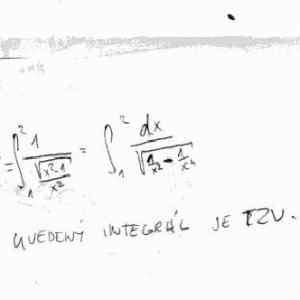 = ∫₁² 1/(√(x²-1)/x²) = ∫₁² dx/√(1/x² - 1/x⁴)
UVEDENÝ INTEGRÁL JE TZV.